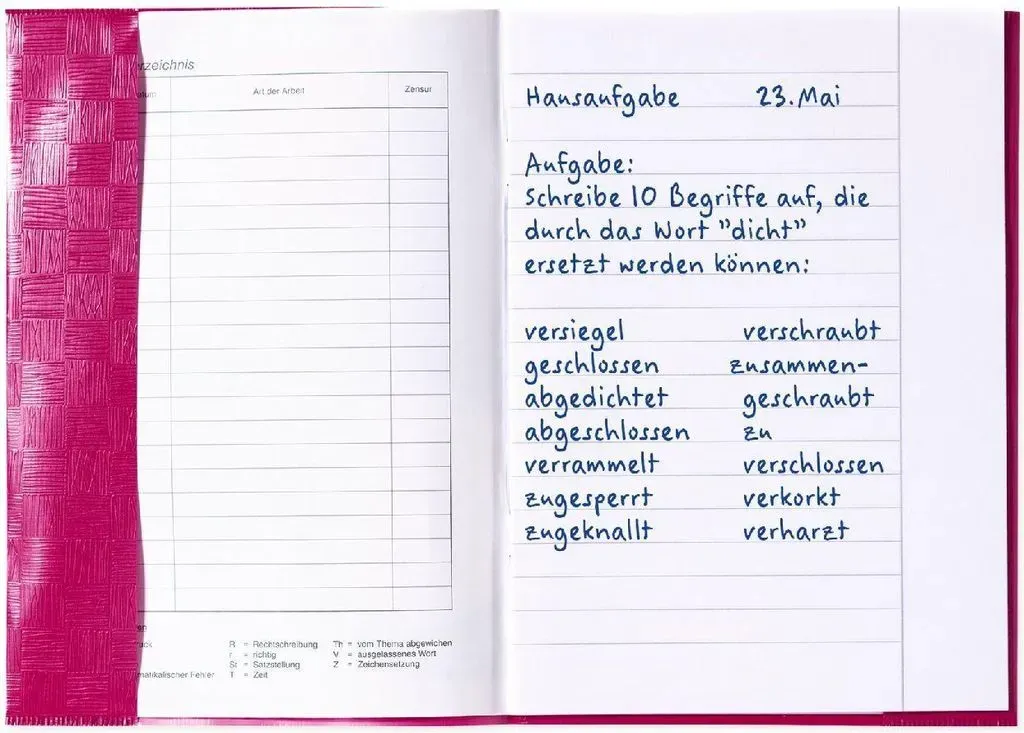 rzeichnis
tum Art der Arbeit Zensur
R = Rechtschreibung Th = vom Thema abgewichen
r = richtig V = ausgelassenes Wort
St = Satzstellung Z = Zeichensetzung
T = Zeit
Hausaufgabe 23. Mai
Aufgabe:
Schreibe 10 Begriffe auf, die
durch das Wort "dicht"
ersetzt werden können:
versiegel verschraubt
geschlossen zusammen-
abgedichtet geschraubt
abgeschlossen zu
verrammelt verschlossen
zugesperrt verkorkt
zugeknallt verharzt